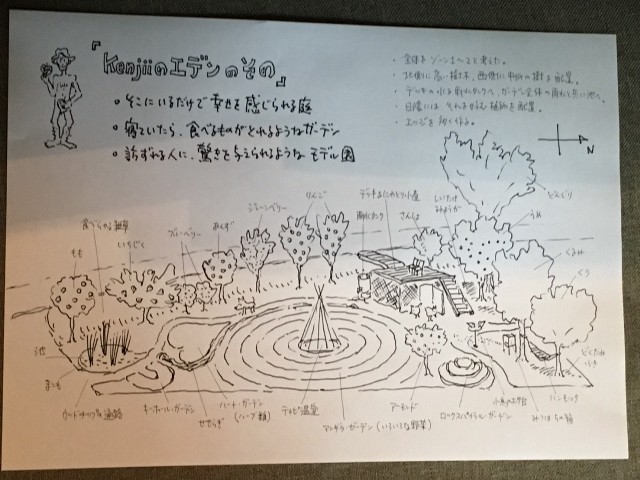 『Kenjiiのエデンのその』
・そこにいるだけで幸せを感じられる庭
・寝ていたら、食べるものがとれるようなガーデン
・訪ずれる人に、驚きを与えられるようなモデル園
・全体を ゾーン1〜2と考えた。
・北側に高い樹木、西側に中高の樹を配置。
・日陰には それを好む 植物を配置。
・エッジを多く作る。
N
どんぐり
うめ
くるみ
くり
デッキ&にわとり小屋
しいたけ
みょうが
雨水タンク
さんしょ
りんご
ジューンベリー
あんず
ブルーベリー
いちじく
食べられる雑草
もも
池
まこも
ウッドチップの通路
キーホールガーデン
せせらぎ
ハートガーデン
(ハーブ類)
ティピ温室
マンダラガーデン(いろいろな野菜)
アーモンド
ロックスパイラルガーデン
小鳥のエサ台
みつばちの箱
ハンモック
どくだみ
ふき